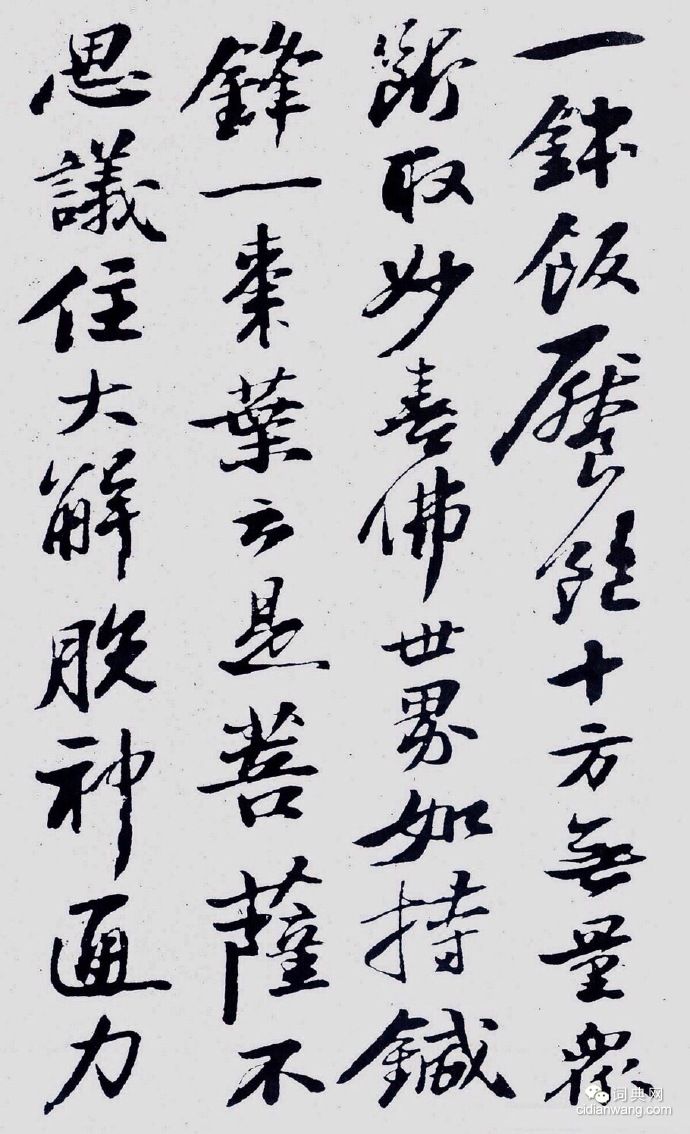 一鉢飯饜飽十方無量衆
斷取妙喜佛世界如持鍼
鋒一棗葉云是菩薩不
思議住大解脫神通力
词典网
cidianwang.com